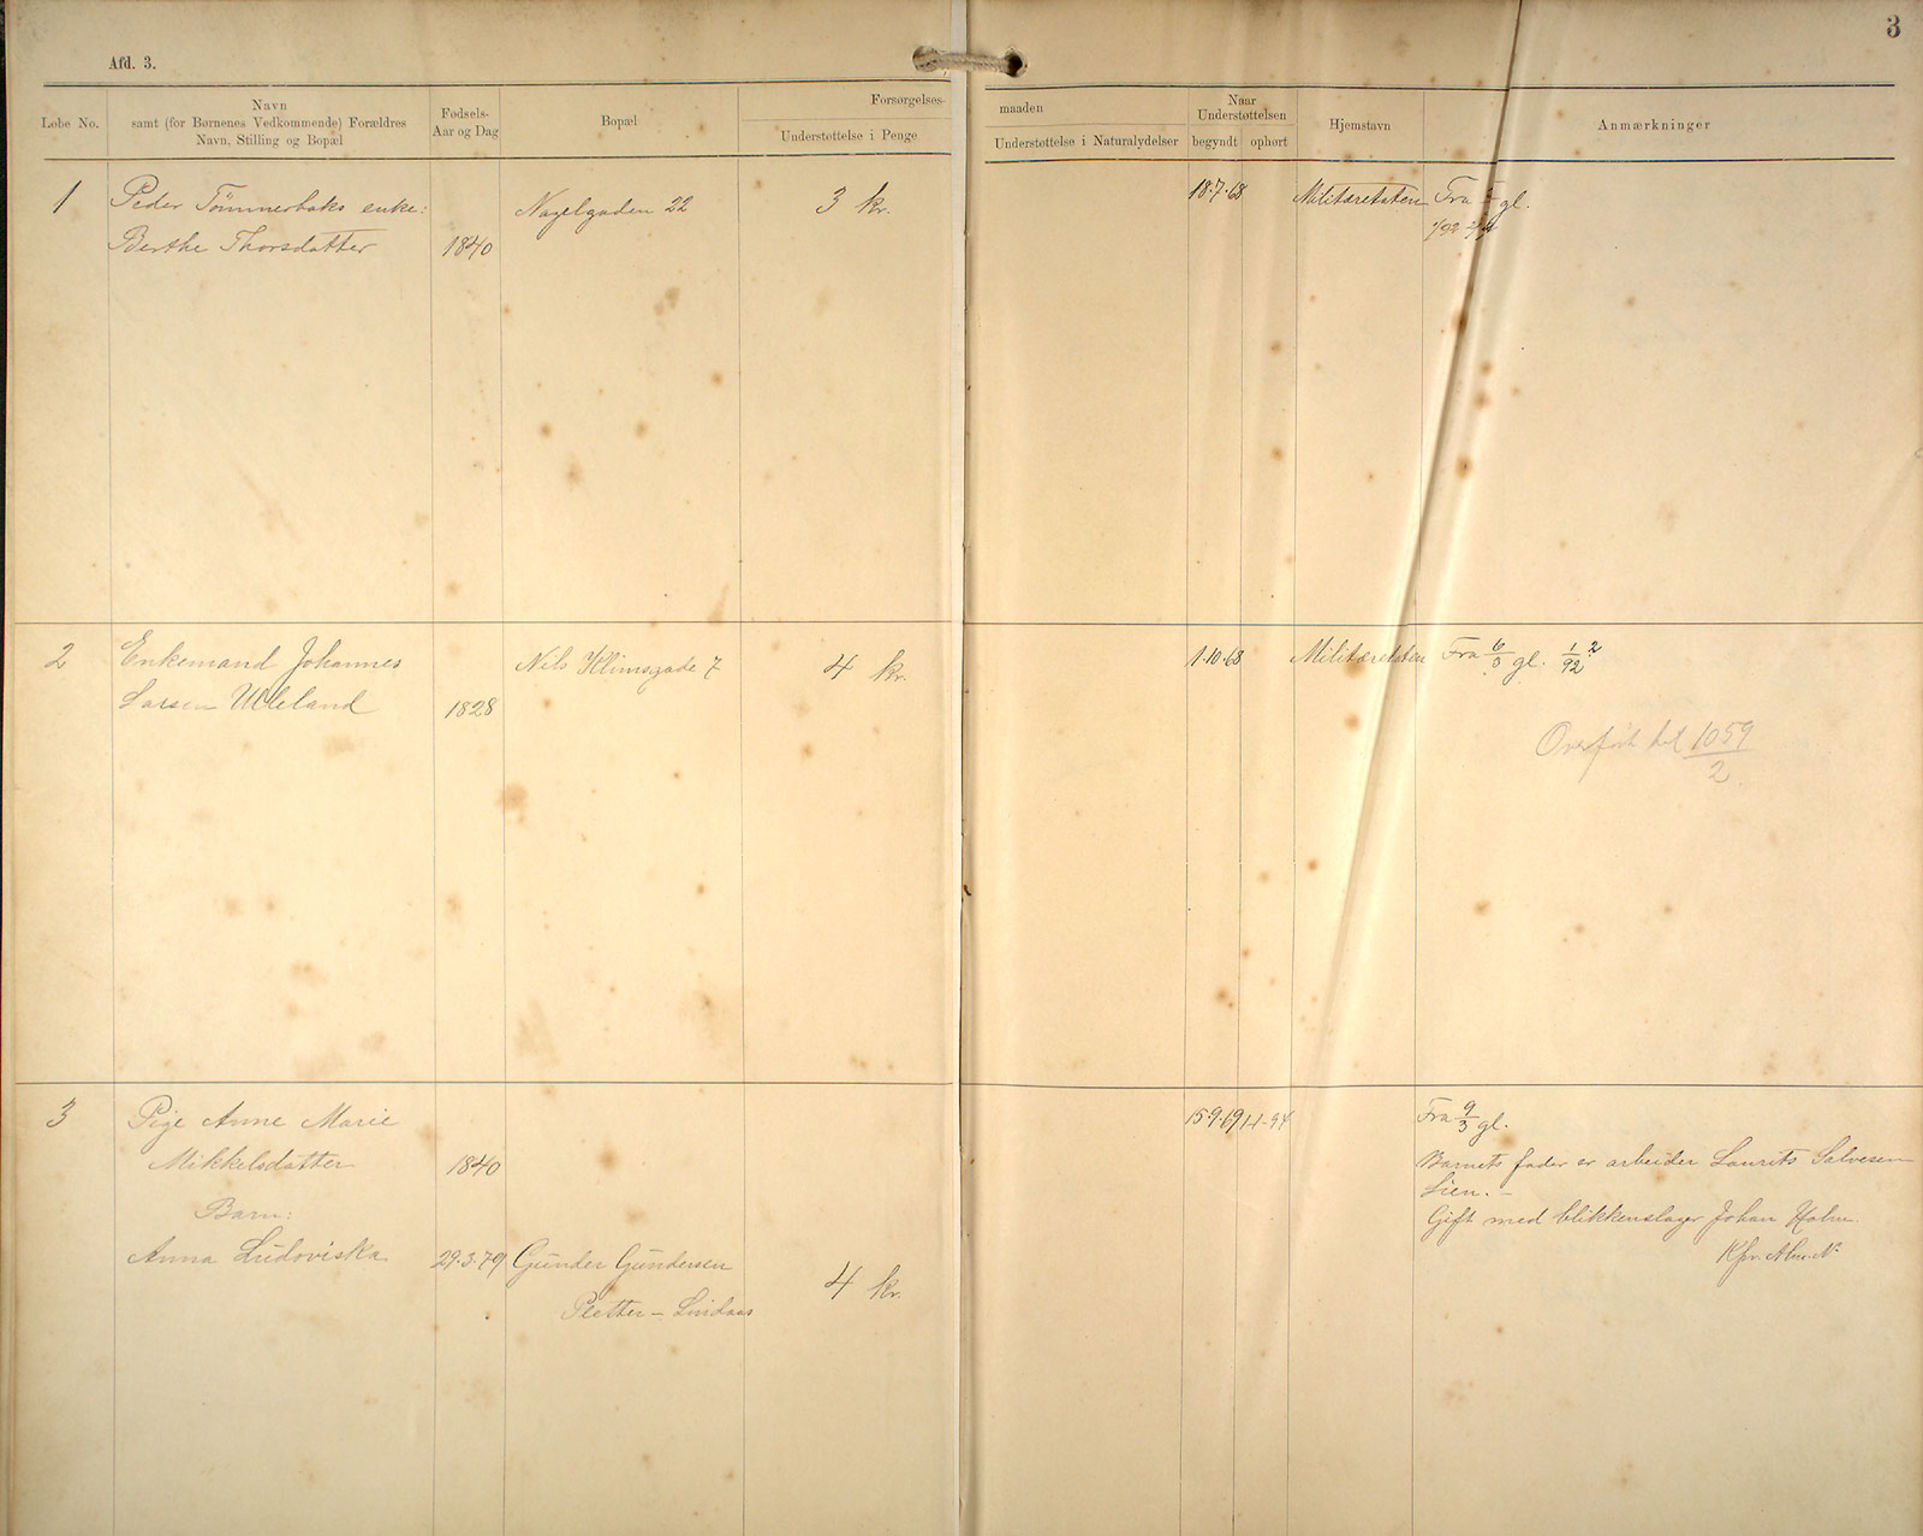 3
Afd. 3.
Løbe No.
Navn
samt (for Børnenes Vedkommende) Forældres
Navn, Stilling og Bopæl
Fødsels-
Aar og Dag
Bopæl
Forsørgelses-
Understøttelse i Penge
maaden
Understøttelse i Naturalydelser
Naar
Understøttelsen
begyndt ophørt
Hjemstavn
Anmærkninger
1 Peder Tömmerbaks enke: Nagelgaden 22 3 kr. 18.7.68 Militæretaten Fra gl.
Berthe Thorsdatter 1840
2 Enkemand Johannes Nils Klimsgade 7 4 kr. 1.10.68 Militæretaten Fra 6/3 gl. 1/92 2
Larsen Ueland 1828
Overført til 1059/2
3 Pige Anne Marie 15.9.69 Fra 9/3 gl.
Mikkelsdatter 1840
Barnets fader er arbeider Laurits Salvesen
Lien. –
Barn:
Gift med blikkenslager Johan Holm.
Anna Ludoviska 29.3.79 Gunder Gundersen 4 kr.
Pletten – Lindaas